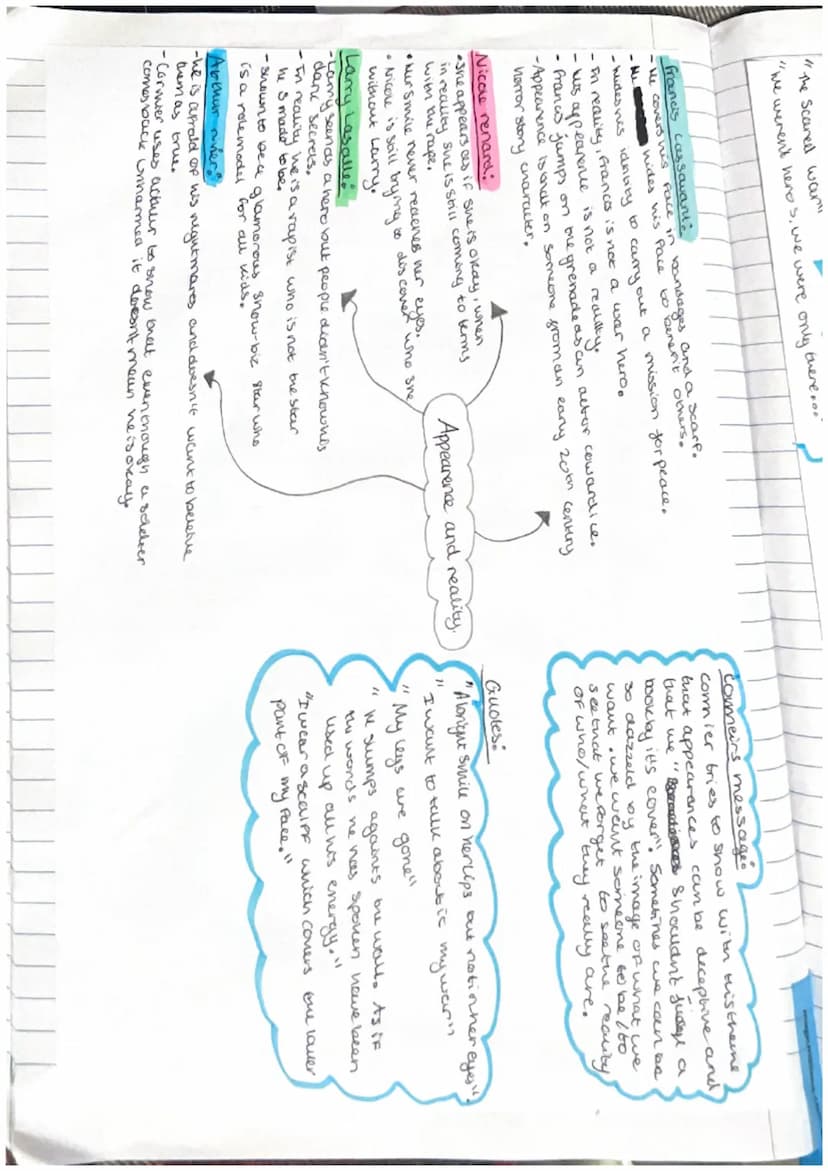 "The Scared war"
"We werent hero s, we were only there..."
Francis Cassavant:
- He covers his face in bandages and a scarf.
- He hides his face to benefit others.
- hides his identity to carry out a mission for peace.
- In reality, Francis is not a war hero.
- his appearence is not a reality.
- Francis jumps on the grenade as an act of cowardice.
- Appearence is that on someone from an early 20th century
horror story character.
Corneirs message:
cormier tries to show with this theme
that appearences can be deceptive and
that we " shouldn't judge a
book by its cover". Sometimes we can be
so dazzeld by the image of what we
want. we want someone to be/to
see that we forget to see the reality
of who/what they really are.
Nicole renard:
• She appears as if she is okay, when
in reality she is still coming to terms
with the rape.
• Her smile never reaches her eyes.
• Nicole is still trying to discover who she
without Larry.
Appearence and reality.
Larry Lasalle:
- Larry seen as a hero but people didn't know his
dark secrets.
- In reality he is a rapist who is not the star
he s made to be.
- shown to be a glamorous show-biz star who
is a rolemodel for all kids.
Arthur rivier:
- he is afraid of his nightmares and doesn't want to believe
them as true.
- Cormier uses arthur to show that even though a soldier
comes back unharmed it doesn't mean he is okay.
Quotes:
"A bright smile on her lips but not in her eyes".
"I want to talk about it my war"
"My legs are gone"
"he slumps againts the wall. As if
the words he has spoken have been
used up all his energy."
"I wear a scarf which covers the lower
part of my face."